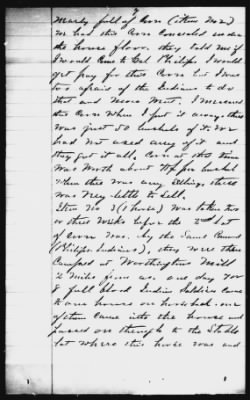 nearly full of Corn (Item No 2)
We had this Corn Concealed under
the house floor. they told me if
I would Come to Col Philips I would
get pay for this Corn but I was
too afraid of the Indians to do
that and never went. I measured
this Corn when I put it away. there
was just 50 bushels of it. We
had not used any of it and
they got it all. Corn at this time
was worth about $ per bushel
when there was any selling. there
was very little to sell.
Item No 1 (1 horse) was taken two
or three weeks before the 2nd lot
of corn was. by the same Command
(Philips Indians), they were then
Camped at Worthington Mill
2 miles from us. one day 7 or
8 full blood Indian Soldiers came
to our house on horseback. one
of them came into the house and
passed on through to the Stable
lot where this horse was and